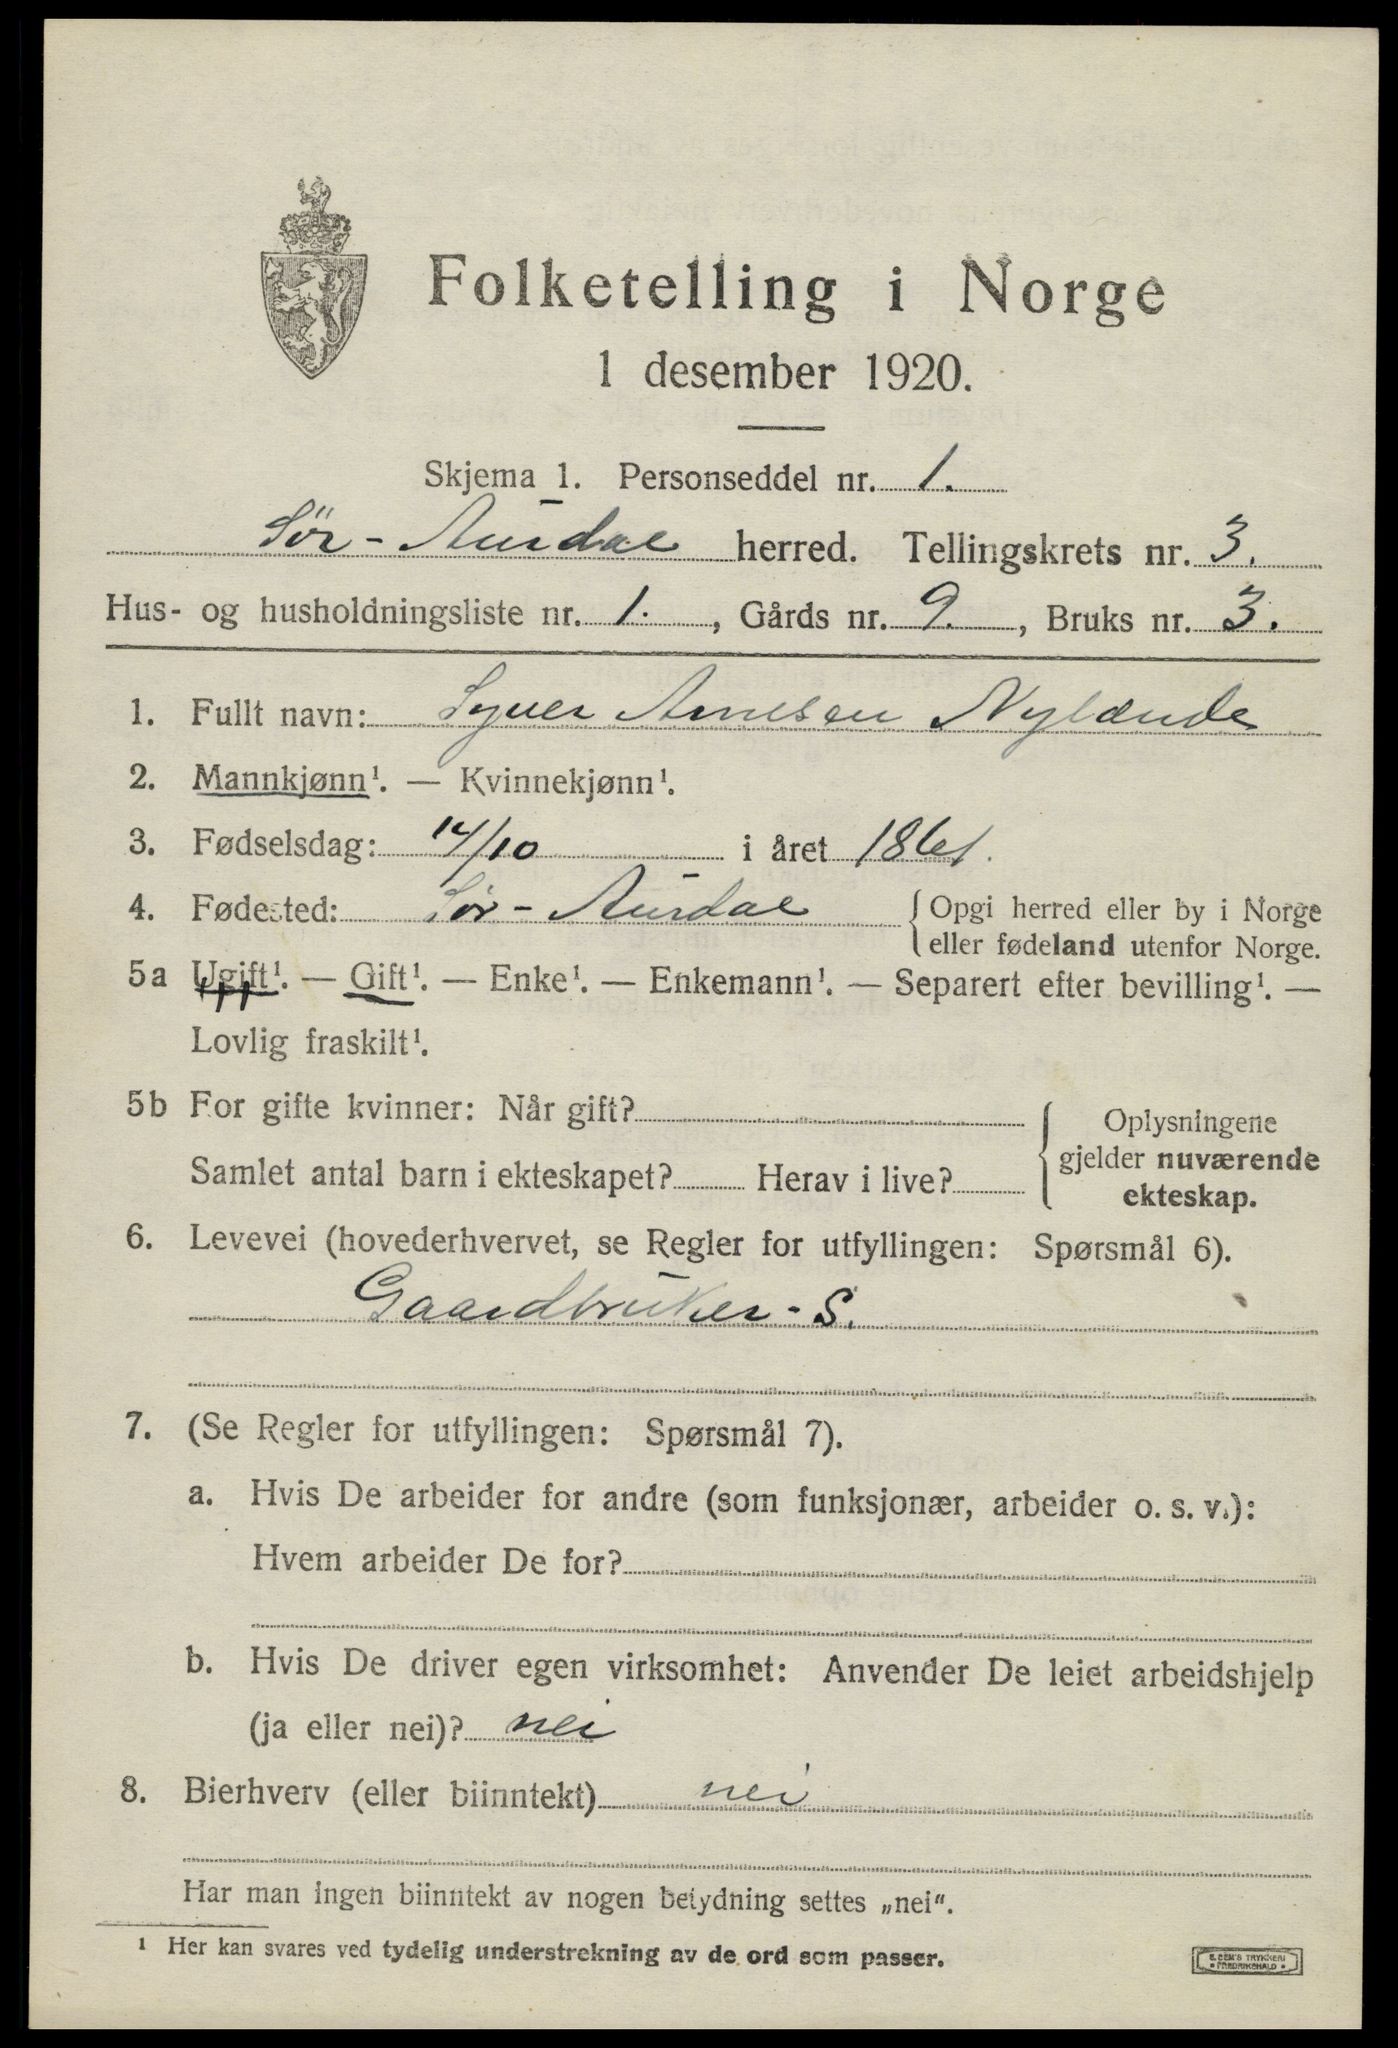 Folketelling i Norge
1 desember 1920.
Skjema 1. Personseddel nr. 1.
Sør-Aurdal herred. Tellingskrets nr. 3.
Hus- og husholdningsliste nr. 1., Gårds nr. 9., Bruks nr. 3.
1. Fullt navn: Syver Arnesen Nylænde
2. Mannkjønn¹. — Kvinnekjønn¹.
3. Fødselsdag: 14/10 i året 1861.
4. Fødested: Sør-Aurdal { Opgi herred eller by i Norge
eller fødeland utenfor Norge.
5a Ugift¹. — Gift¹. — Enke¹. — Enkemann¹. — Separert efter bevilling¹. —
Lovlig fraskilt¹.
5b For gifte kvinner: Når gift?
Samlet antal barn i ekteskapet? Herav i live?
Oplysningene
gjelder nuværende
ekteskap.
6. Levevei (hovederhvervet, se Regler for utfyllingen: Spørsmål 6).
Gaardbruker - S.
7. (Se Regler for utfyllingen: Spørsmål 7).
a. Hvis De arbeider for andre (som funksjonær, arbeider o. s. v.):
Hvem arbeider De for?
b. Hvis De driver egen virksomhet: Anvender De leiet arbeidshjelp
(ja eller nei)? nei
8. Bierhverv (eller biinntekt) nei
Har man ingen biinntekt av nogen betydning settes „nei".
¹ Her kan svares ved tydelig understrekning av de ord som passer.
E. SEM'S TRYKKERI
• FREDRIKSHALD •